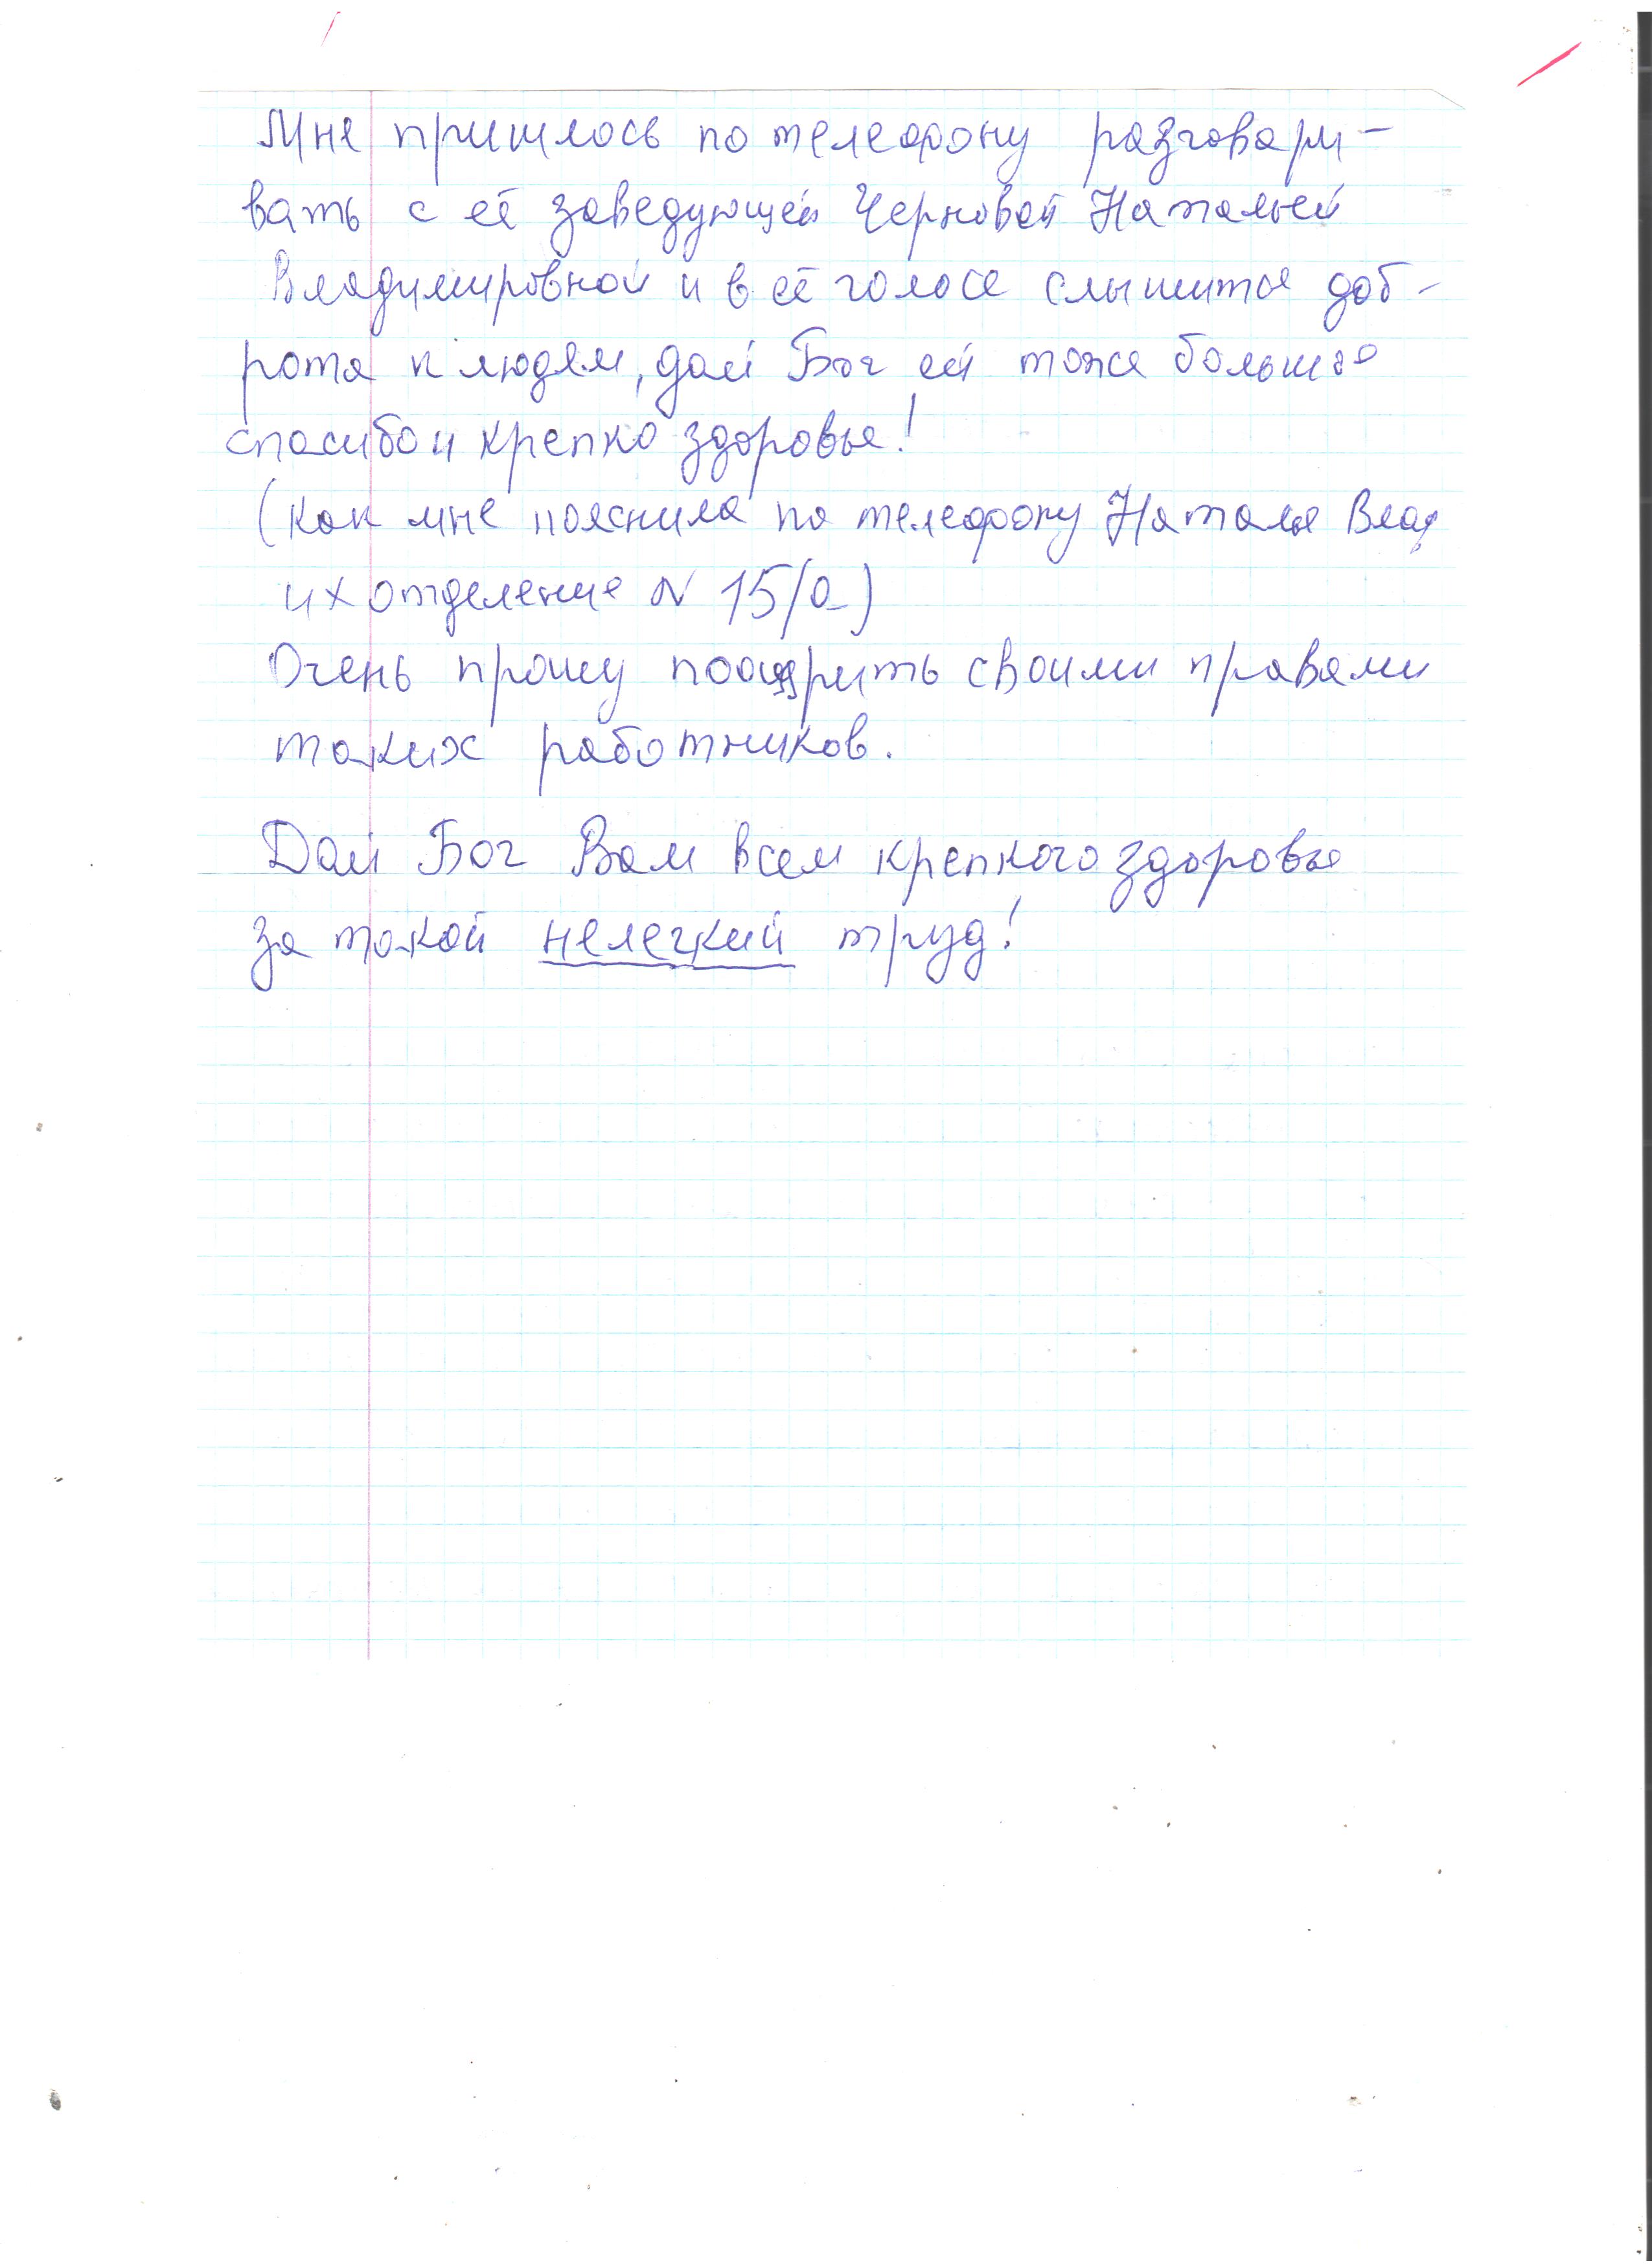 Мне пришлось по телефону разговари-
вать с её заведующей Черновой Натальей
Владимировной и в её голосе слышится доб-
рота к людям, дай Бог ей тоже большое
спасибо и крепко здоровье!
(Как мне пояснила по телефону Наталья Влад
их отделение N 15/а)
Очень прошу поощрить своими правами
таких работников.
Дай Бог Вам всем крепкого здоровья
за такой нелегкий труд!